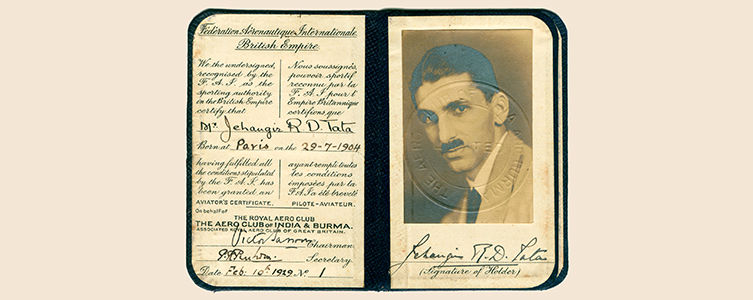 Fédération Aéronautique Internationale
British Empire
We the undersigned,
recognised by the
F.A.I. as the
sporting authority
in the British Empire
certify that
Nous soussignés,
pouvoir sportif
reconnu par la
F.A.I pour l'
Empire Britannique
certifions que
Mr. Jehangir R D. Tata
Born at Paris on the 29-7-1904
having fulfilled all
the conditions stipulated
by the F.A.I. has
been granted an
AVIATOR'S CERTIFICATE.
ayant rempli toutes
les conditions
imposées par la
F.A.I a été breveté
PILOTE-AVIATEUR.
On behalf of
THE ROYAL AERO CLUB
THE AERO CLUB OF INDIA & BURMA.
ASSOCIATED ROYAL AERO CLUB OF GREAT BRITAIN.
Victor Sassoon Chairman
Secretary
Date Feb. 10th 1929 No 1
Jehangir R. D. Tata
(Signature of Holder)